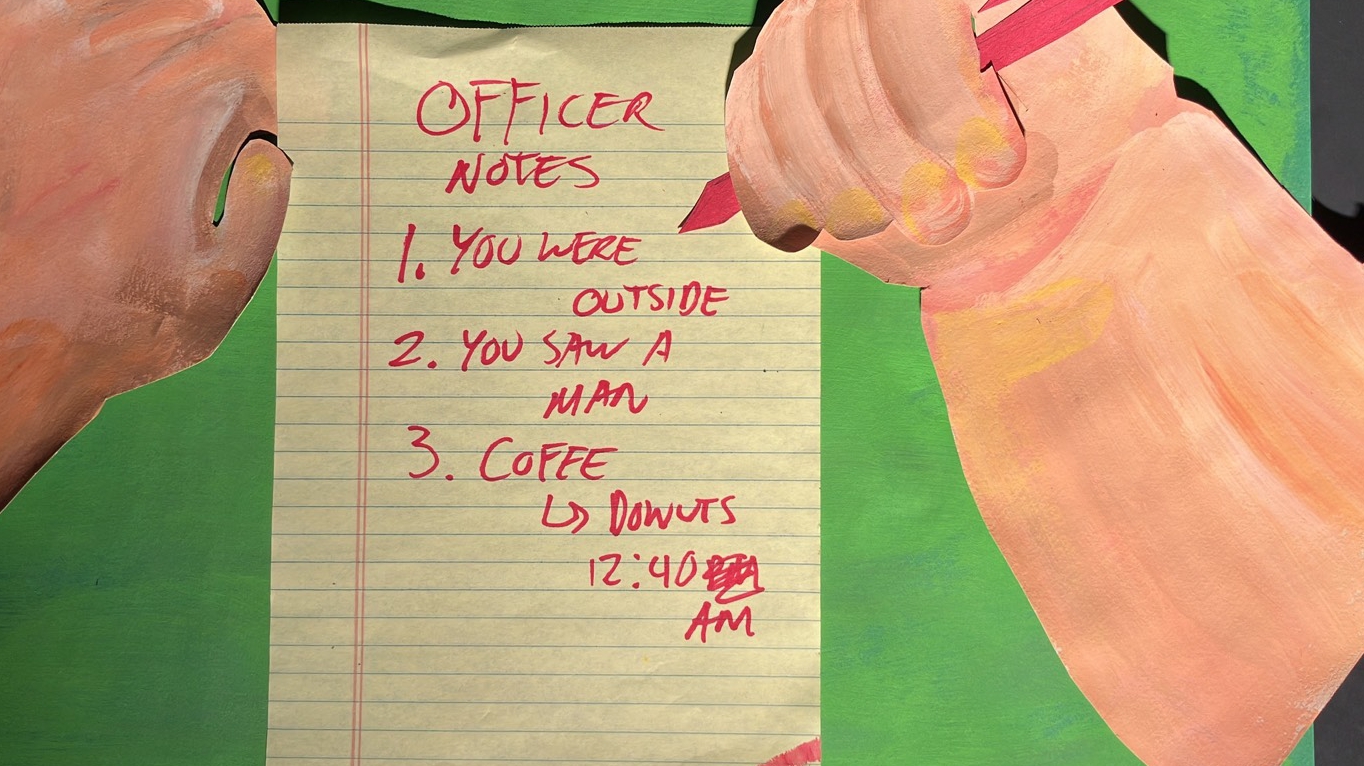 OFFICER
NOTES
1. YOU WERE
OUTSIDE
2. YOU SAW A
MAN
3. COFFE
↳ DONUTS
12:40
AM